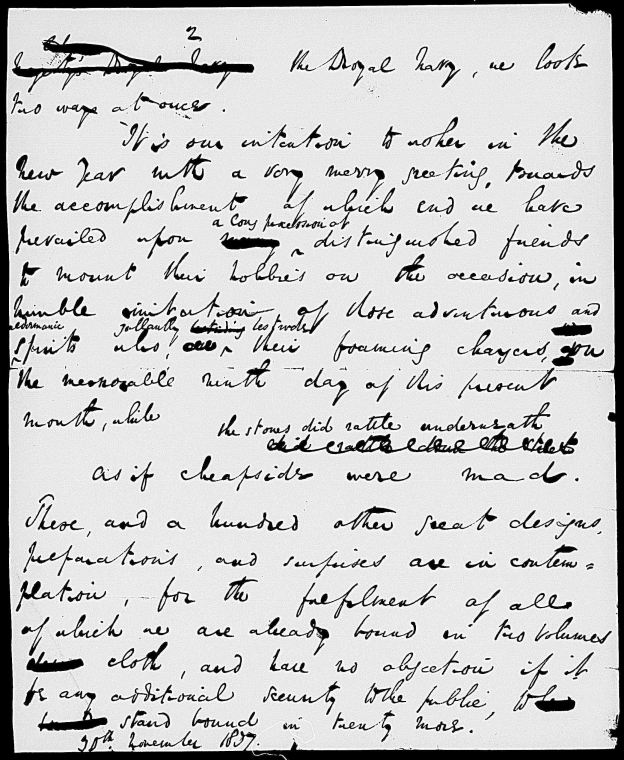 2
the Royal Navy, we look
two ways at once.
It is our intention to usher in the
New Year with a very merry greeting, towards
the accomplishment of which end we have
a long procession of
prevailed upon distinguished friends
to mount their hobbies on the occasion, in
humble imitation of those adventurous and
gallantly bestrode
spirits who, their foaming chargers, on
the memorable ninth day of this present
month, while
the stones did rattle underneath
as if Cheapside were mad.
These, and a hundred other great designs,
preparations, and surprises are in contem=
plation, for the fulfilment of all
of which we are already bound in two volumes
cloth, and have no objection if it
be any additional security to the public, to
stand bound in twenty more.
30th. November 1837.